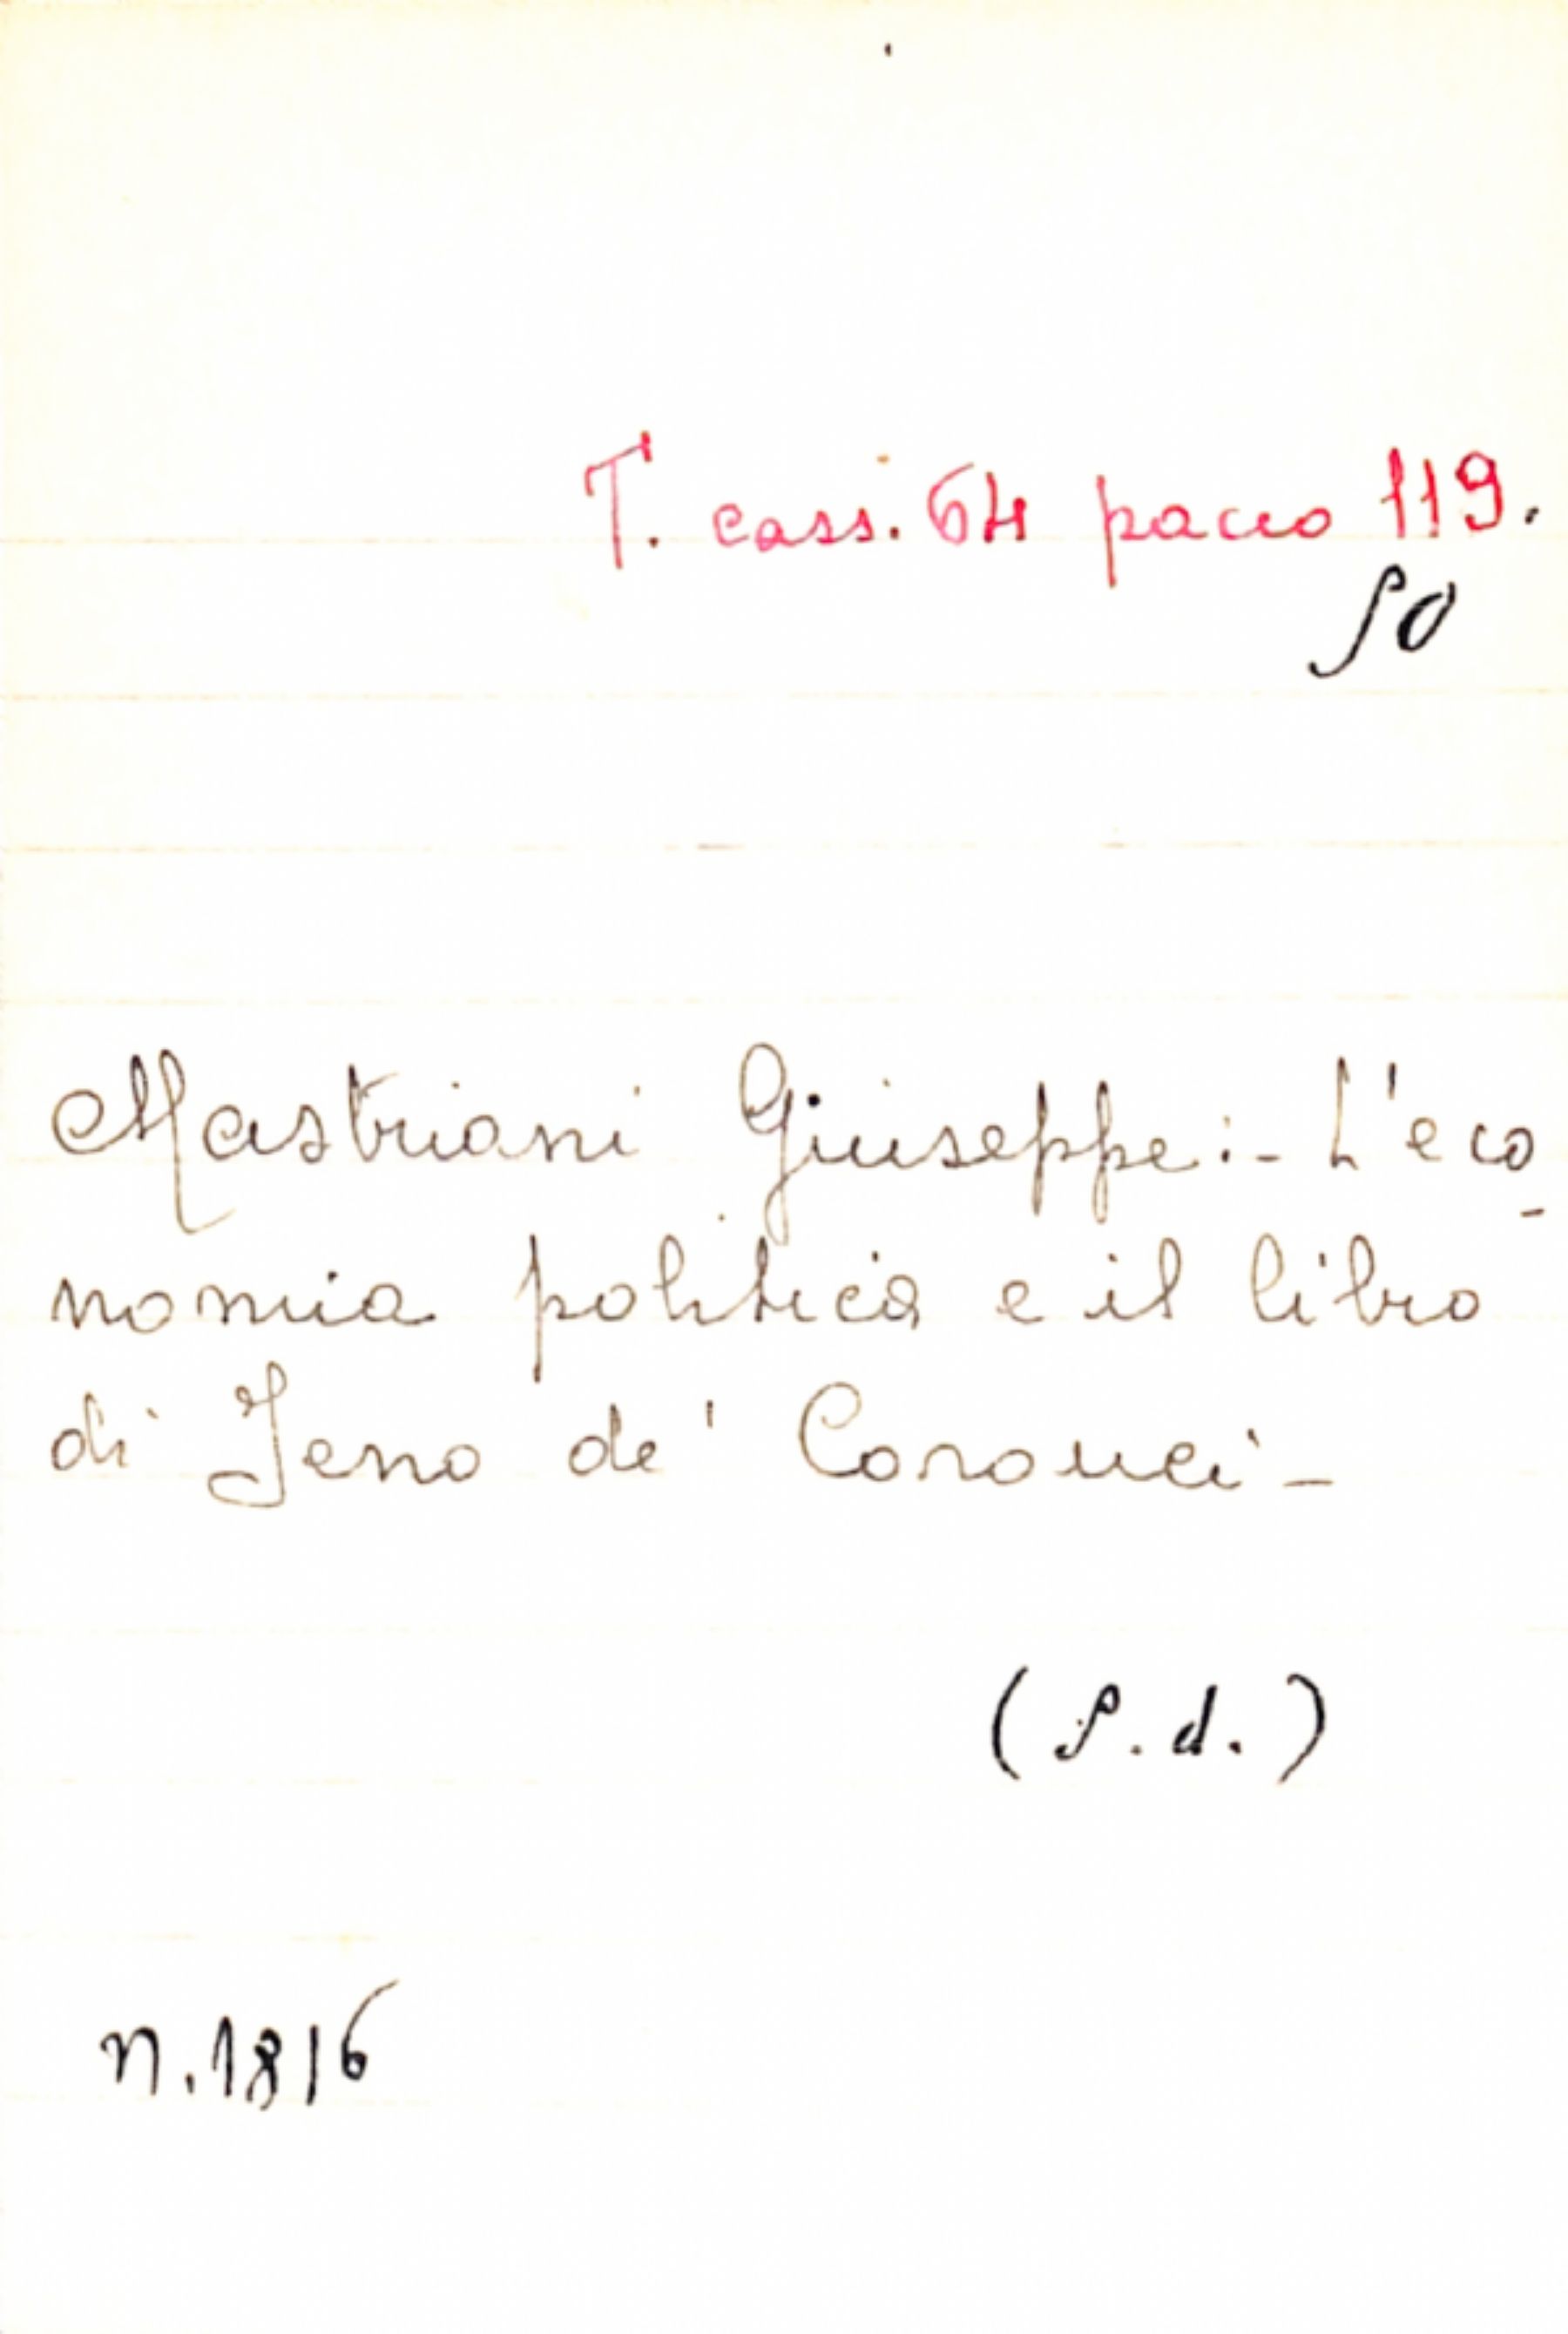 T. cass. 64 pacco 119.
50
Mastriani Giuseppe:- L'eco-
nomia politica e il libro
di Jeno de' Coronei -
(S.d.)
n. 1816